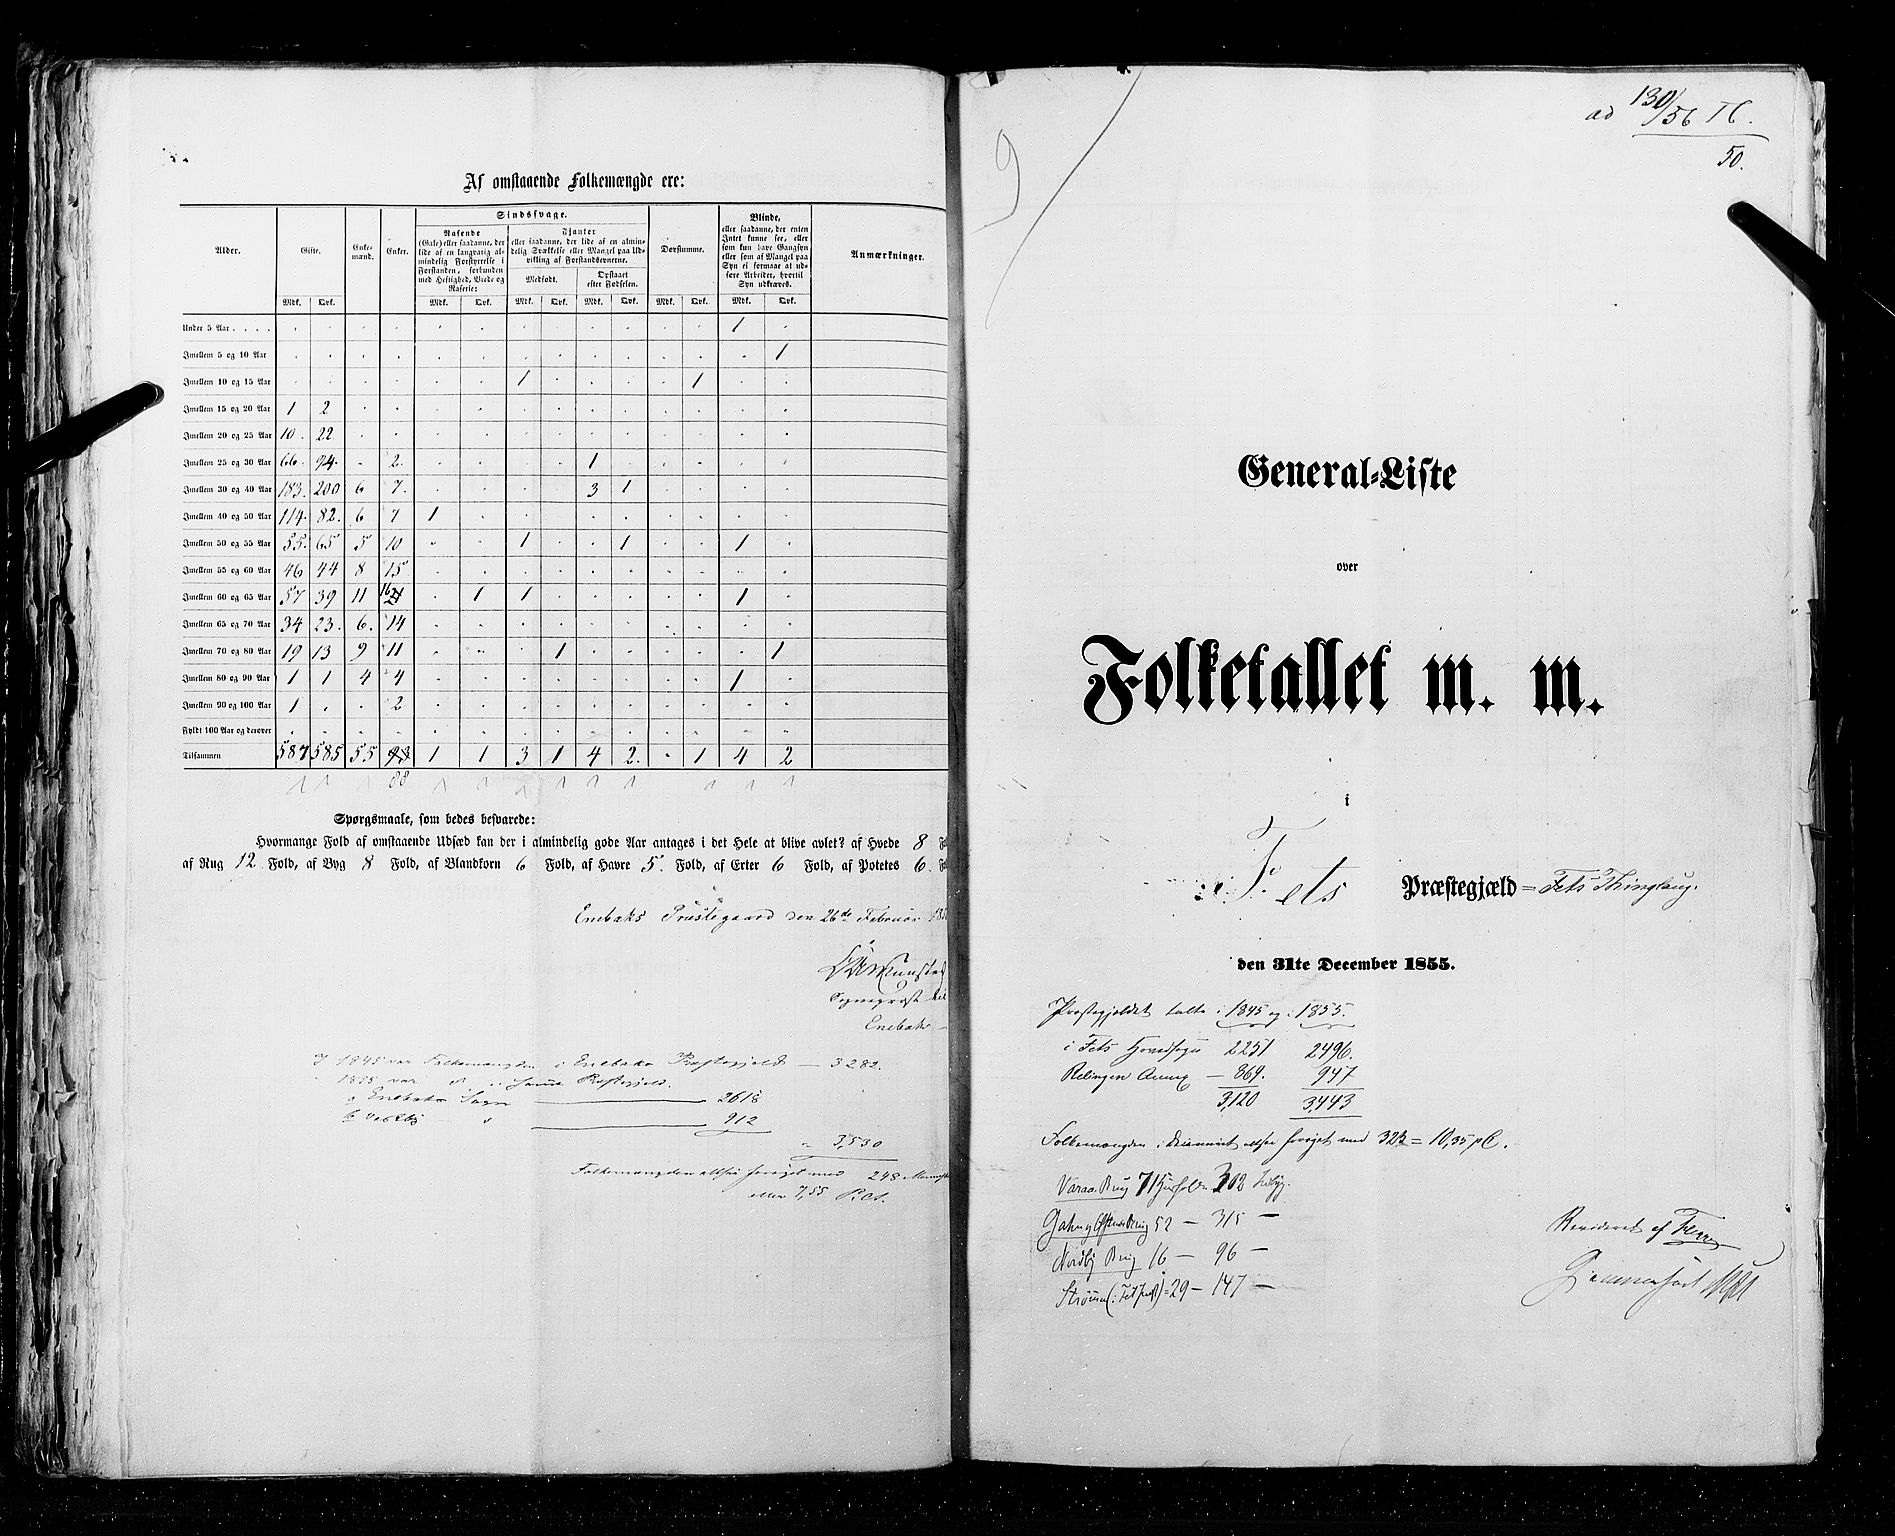 Af omstaaende Folkemængde ere:
Alder. Gifte. Enkemænd. Enker. Sindssvage. Døvstumme. Blinde, Anmærkninger.
Rasende (Gale) eller saadanne, der lide af en langvarig almindelig Forstyrrelse i Forstanden, forbunden med Heftighed, Vrede og Raserie:
Fjanter eller saadanne, der lide af en almindelig Svækkelse eller Mangel paa Udvikling af Forstandsevnerne.
Medfødt. Opstaaet efter Fødselen.
eller saadanne, der enten Intet kunne see, eller som kun have Gangsyn eller som af Mangel paa Syn ei formaae at udføre Arbeider, hvortil Syn udkræves.
Mdk. Qvk. Mdk. Qvk. Mdk. Qvk. Mdk. Qvk. Mdk. Qvk. Mdk. Qvk.
Under 5 Aar . . . . . . . . . . . . . . . . 1 .
Imellem 5 og 10 Aar . . . . . . . . . . . . . 1
Imellem 10 og 15 Aar . . . . . . 1 . . . . 1 . .
Imellem 15 og 20 Aar 1 2 . . . . . . . . . . . .
Imellem 20 og 25 Aar 10. 22 . . . . . . . . . . . .
Imellem 25 og 30 Aar 66. 94. . 2. . . . . 1 . . . .
Imellem 30 og 40 Aar 183. 200 6 7. . . . . 3 1 . . . .
Imellem 40 og 50 Aar 114. 82. 6 7 1 . . . . . . . . .
Imellem 50 og 55 Aar 55. 65 5 10 . . 1 . . 1 . . 1 .
Imellem 55 og 60 Aar 46 44 8 15 . . . . . . . . . .
Imellem 60 og 65 Aar 57 39 11 16 21 . 1 1 . . . . . 1 .
Imellem 65 og 70 Aar 34 23. 6. 14 . . . . . . . . . .
Imellem 70 og 80 Aar 19 13 9 11 . . . 1 . . . . . 1
Imellem 80 og 90 Aar 1 1 4 4 . . . . . . . . 1 .
Imellem 90 og 100 Aar 1 . . 2 . . . . . . . . . .
Fyldt 100 Aar og derover . . . . . . . . . . . . . .
Tilsammen 587 585 55 93 1 1 3 1 4 2. . 1 4 2
88
Spørgsmaale, som bedes besvarede:
Hvormange Fold af omstaaende Udsæd kan der i almindelig gode Aar antages i det Hele at blive avlet? af Hvede 8
af Rug 12 Fold, af Byg 8 Fold, af Blandkorn 6 Fold, af Havre 5. Fold, af Erter 6 Fold, af Potetes 6.
Enebaks Præstegaard den 26de Februar
Sogneprest til
Enebak
I 1845 var Folkemængden i Enebaks Præstegjeld — 3282.
1855 var i samme Præstegjeld.
a Enebaks Sogn 2618
b 912
3,530
Folkemængden altsaa forøget med 248
eller 7,55 P.Ct.
9
ad 130/56 TC.
50.
General-Liste
over
Folketallet m. m.
i
Fets Præstegjæld = Fets Thinglaug.
den 31te December 1855.
Præstegjeldet talte i 1845 og i 1855.
i Fets Hovedsogn 2251 2496.
Relingen Annex — 869. 947
3,120 3,443
Folkemængden i Decenniet altsaa forøget med 323 = 10,35 pC.
Varaa Brug 71 Huusholdn 302 Indbyg.
52 — 315 —
Nordby Brug 16 — 96 —
Strømm 29 — 147 —
Revideret af